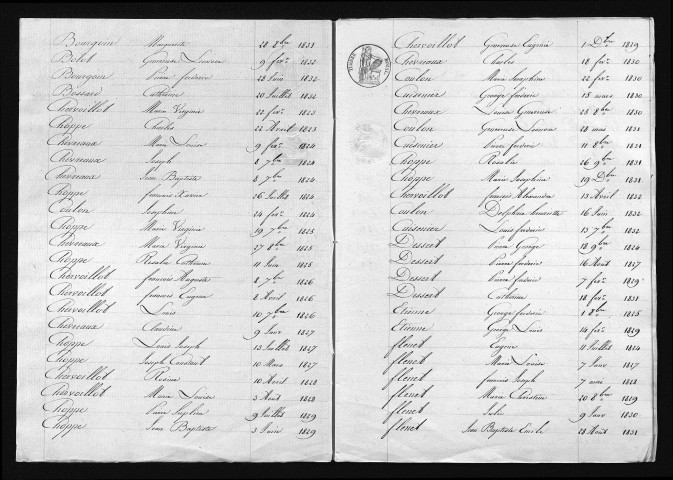 Bourgoin Marguerite 28 8bre 1831
Bolot Genereuse Louise 9 fer 1832
Bourgoin Pierre frederic 28 Juin 1832
Bossard Catherine 20 Juillet 1832
Chervoillot Marie Virginie 22 fer 1823
Choppe Charles 22 Avril 1823
Chevreaux Marie Louise 9 fer 1824
Chevreaux Joseph 8 7bre 1824
Chevreaux Jean Baptiste 8 7bre 1824
Choppe francois Xavier 26 Juillet 1824
Coulon Seraphin 24 fer 1824
Choppe Marie Virginie 19 7bre 1825
Chevreaux Marie Virginie 27 8bre 1825
Choppe Rosalie Catherine 11 Juin 1825
Chervoillot francois Auguste 8 7bre 1826
Chervoillot francois Eugene 8 Avril 1826
Chervoillot Louis 10 7bre 1826
Chevreaux Claudine 9 Janr 1827
Choppe Louis Joseph 13 Juillet 1827
Choppe Joseph Constant 10 Mars 1827
Chervoillot Rosine 10 Avril 1828
Chervoillot Marie Louise 3 Aout 1828
Choppe Pierre 9 Juillet 1829
Choppe Jean Baptiste 3 Juin 1829
Chervoillot Genereuse Eugenie 1 Dbre 1829
Chevreaux Charles 18 fer 1830
Coulon Marie Josephine 22 fer 1830
Cuisenier George frederic 15 mars 1830
Chevreaux Louise Genereuse 28 8bre 1830
Coulon Genereuse Louise 28 mai 1831
Cuisenier Pierre frederic 11 8bre 1831
Choppe Rosalie 26 9bre 1831
Choppe Marie Josephine 19 Dbre 1831
Chervoillot francois Alexandre 13 Avril 1832
Coulon Delphine 16 Juin 1832
Cuisenier Louis frederic 15 7bre 1832
Dessert Pierre George 18 9bre 1824
Dessert Pierre frederic 16 Aout 1827
Dessert Pierre frederic 7 fer 1829
Dessert Catherine 18 fer 1831
Etienne George frederic 1 8bre 1825
Etienne George Louis 14 fer 1829
flenet Eugene 11 Juillet 1824
flenet Marie Louise 7 Janr 1827
flenet francois Joseph 7 mai 1828
flenet Marie Christine 20 8bre 1829
flenet Julie 9 Janr 1830
flenet Jean Baptiste Emile 28 Aout 1831